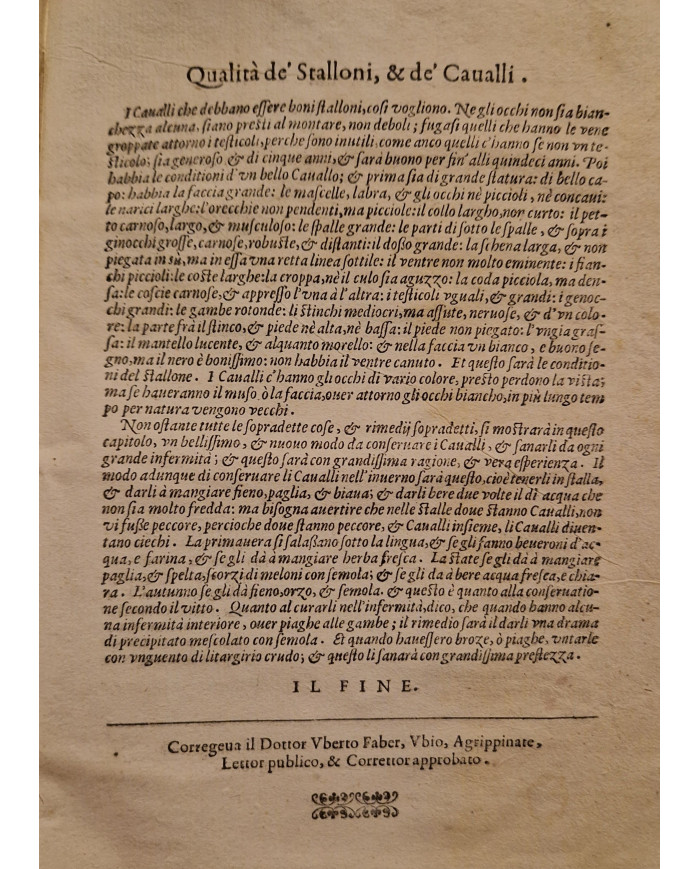 Qualità de' Stalloni, & de' Caualli.
I Caualli che debbano eſſere boni ſtalloni, coſi vogliono. Ne gli occhi non ſia bian-
chezza alcuna, ſiano preſti al montare, non deboli; fugaſi quelli che hanno le vene
groppate attorno i teſticoli, perche ſono inutili, come anco quelli c'hanno ſe non vn te-
ſticolo; ſia generoſo & di cinque anni, & ſarà buono per fin' alli quindeci anni. Poi
habbia le conditioni d'vn bello Cauallo; & prima ſia di grande ſtatura: di bello ca-
po: habbia la faccia grande: le maſcelle, labra, & gli occhi nè piccioli, nè concaui:
le narici larghe: l'orecchie non pendenti, ma picciole: il collo largho, non curto: il pet-
to carnoſo, largo, & muſculoſo: le ſpalle grande: le parti di ſotto le ſpalle, & ſopra i
ginocchi groſſe, carnoſe, robuſte, & diſtanti: il doſſo grande: la ſchena larga, & non
piegata in sù, ma in eſſa vna retta linea ſottile: il ventre non molto eminente: i fian-
chi piccioli: le coſte larghe: la croppa, nè il culo ſia aguzzo: la coda picciola, ma den-
ſa: le coſcie carnoſe, & appreſſo l'vna à l'altra: i teſticoli vguali, & grandi: i genoc-
chi grandi: le gambe rotonde: li ſtinchi mediocri, ma aſſiute, neruoſe, & d'vn colo-
re: la parte frà il ſtinco, & piede nè alta, nè baſſa: il piede non piegato: l'vngia graſ-
ſa: il mantello lucente, & alquanto morello: & nella faccia vn bianco, e buono ſe-
gno, ma il nero è boniſſimo: non habbia il ventre canuto. Et queſto ſarà le conditio-
ni del ſtallone. I Caualli c'hanno gli occhi di vario colore, preſto perdono la viſta;
ma ſe haueranno il muſo, ò la faccia, ouer attorno gli occhi biancho, in più lungo tem
po per natura vengono vecchi.
Non oſtante tutte le ſopradette coſe, & rimedij ſopradetti, ſi moſtrarà in queſto
capitolo, vn belliſſimo, & nuouo modo da conſeruare i Caualli, & ſanarli da ogni
grande infermità; & queſto ſarà con grandiſſima ragione, & vera eſperienza. Il
modo adunque di conſeruare li Caualli nell'inuerno ſarà queſto, cioè tenerli in ſtalla,
& darli à mangiare fieno, paglia, & biaua; & darli bere due volte il dì acqua che
non ſia molto fredda: ma biſogna auertire che nelle ſtalle doue ſtanno Caualli, non
vi fuſſe peccore, percioche doue ſtanno peccore, & Caualli inſieme, li Caualli diuen-
tano ciechi. La primauera ſi ſalaſſano ſotto la lingua, & ſe gli fanno beueroni d'ac-
qua, e farina, & ſe gli dà à mangiare herba freſca. La ſtate ſe gli dà à mangiare
paglia, & ſpelta, ſcorzi di meloni con ſemola; & ſe gli da à bere acqua freſca, e chia-
ra. L'autunno ſe gli dà fieno, orzo, & ſemola. & queſto è quanto alla conſeruatio-
ne ſecondo il vitto. Quanto al curarli nell'infermità, dico, che quando hanno alcu-
na infermità interiore, ouer piaghe alle gambe; il rimedio ſarà il darli vna drama
di precipitato meſcolato con ſemola. Et quando haueſſero broze, ò piaghe, vntarle
con vnguento di litargirio crudo; & queſto li ſanarà con grandiſſima preſtezza.
IL FINE.
Corregeua il Dottor Vberto Faber, Vbio, Agrippinate,
Lettor publico, & Correttor approbato.